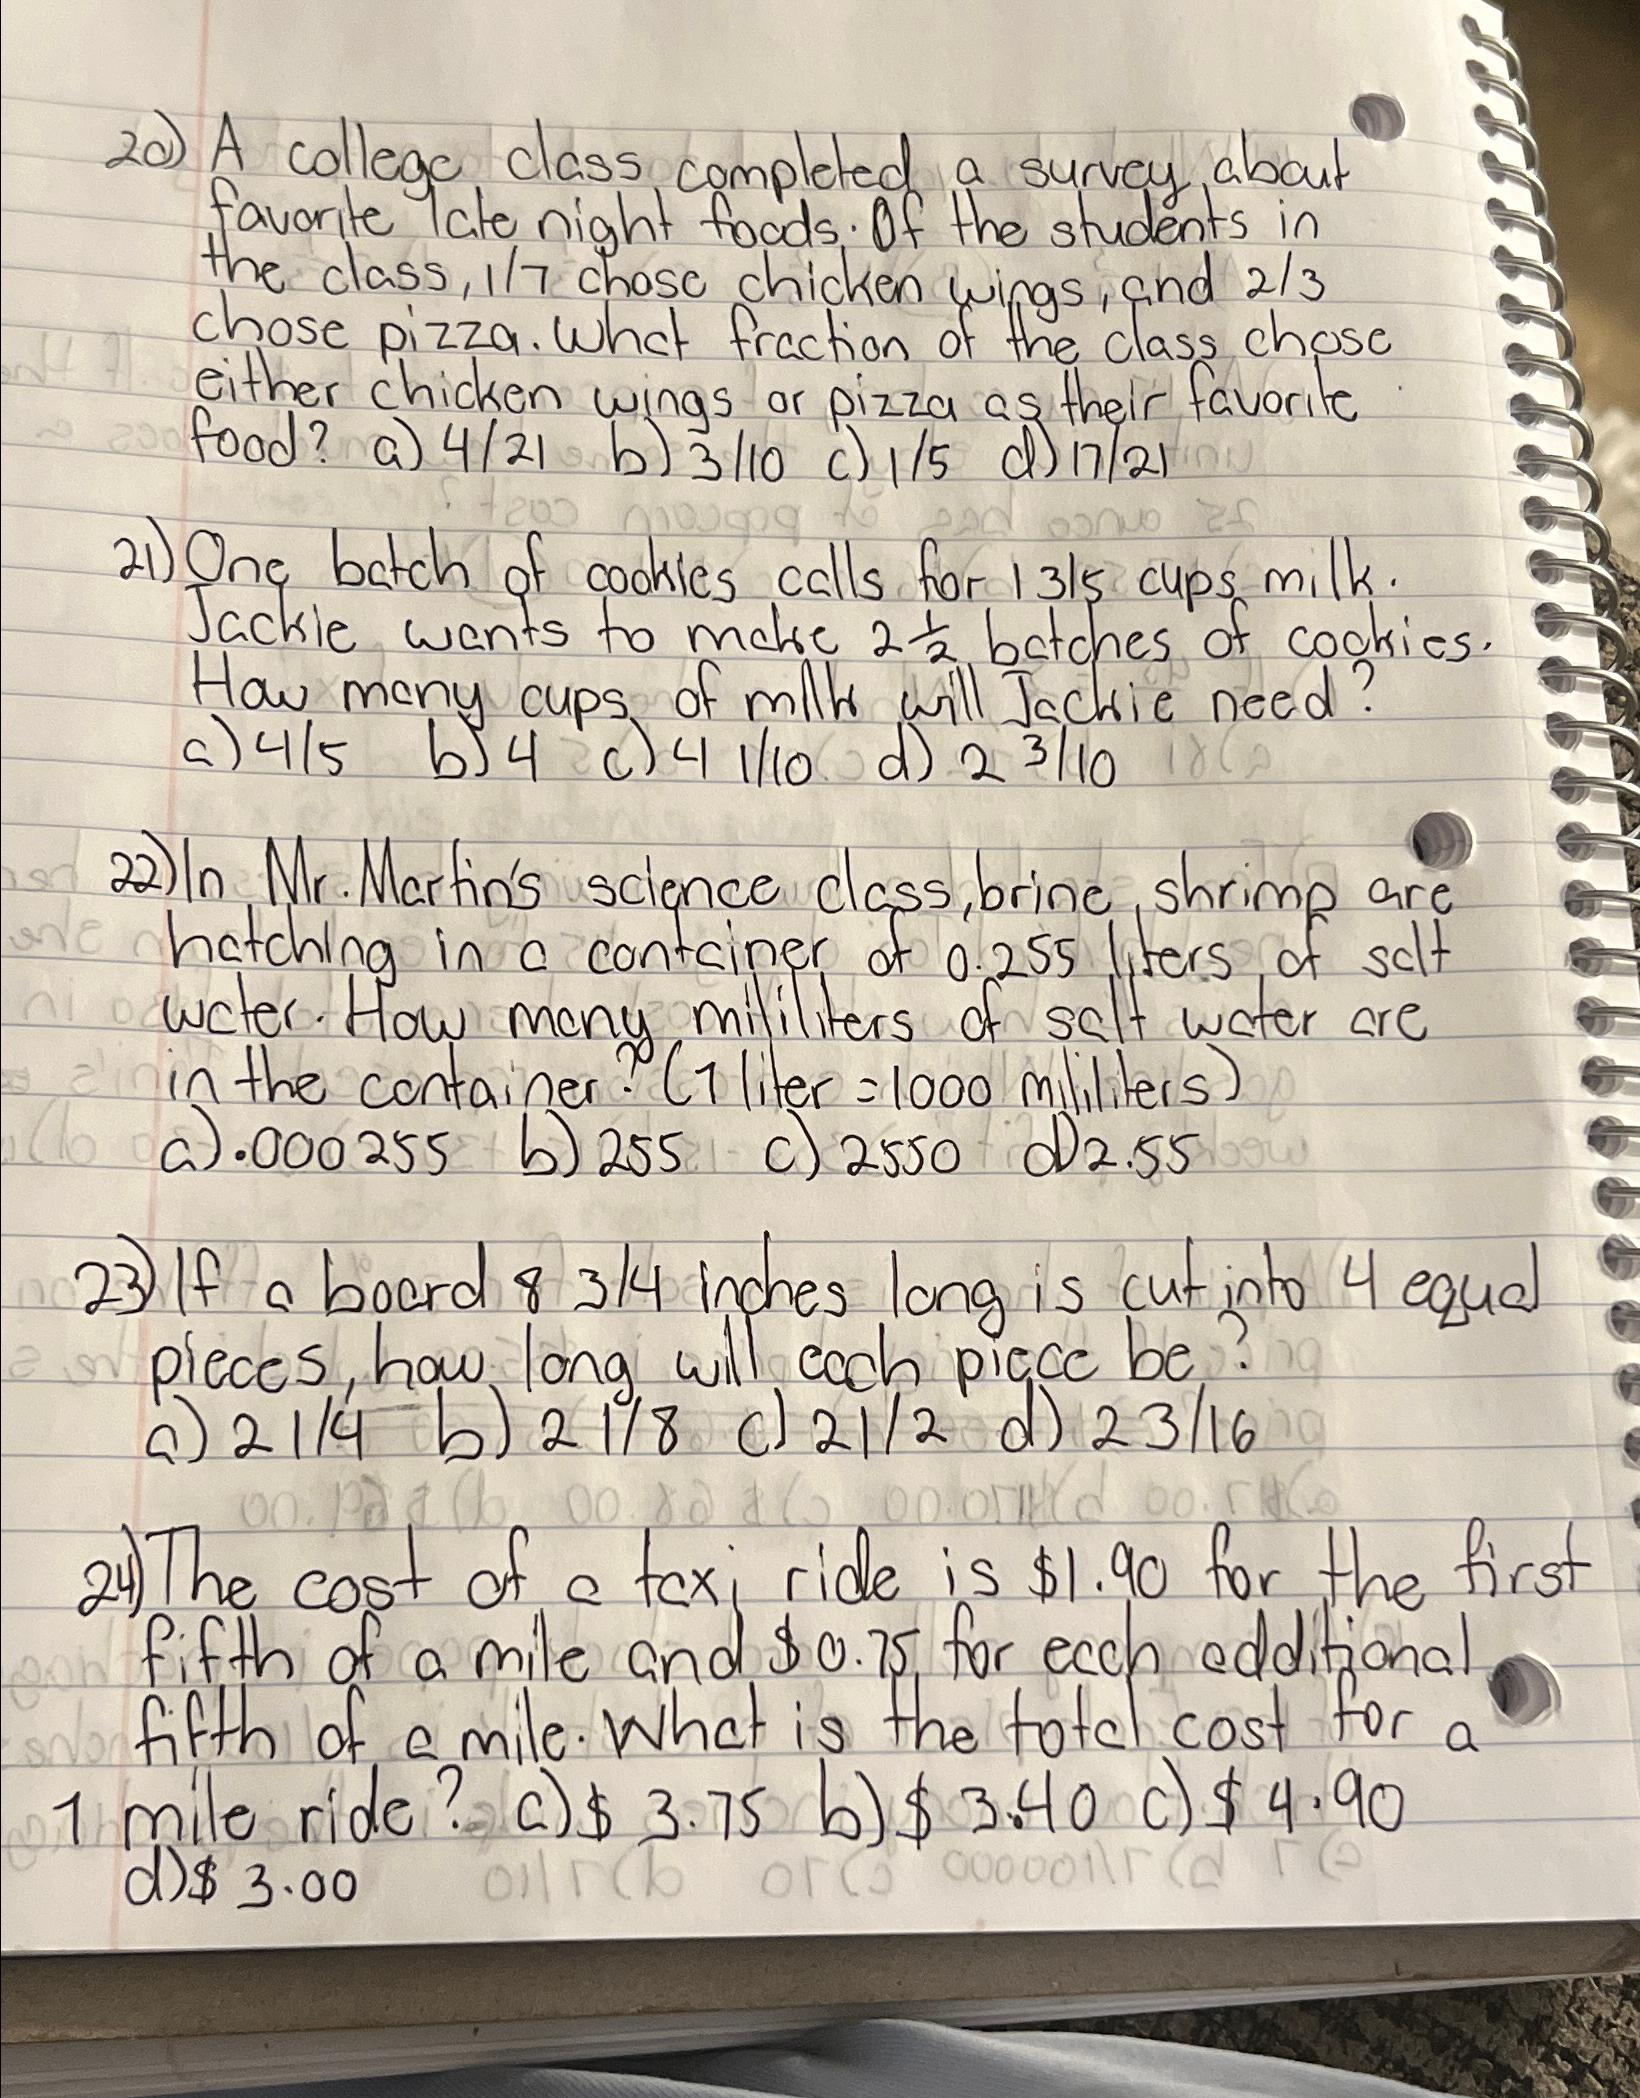 20) A college class completed a survey about
favorite late night foods. Of the students in
the class, 1/7 chose chicken wings, and 2/3
chose pizza. What fraction of the class chose
either chicken wings or pizza as their favorite
food? a) 4/21 b) 3/10 c) 1/5 d) 17/21
21) One batch of cookies calls for 1 3/5 cups milk.
Jackie wants to make 2 1/2 batches of cookies.
How many cups of milk will Jackie need?
a) 4/5 b) 4 c) 4 1/10 d) 2 3/10
22) In Mr. Martin's science class, brine shrimp are
hatching in a container of 0.255 liters of salt
water. How many mililiters of salt water are
in the container? (1 liter = 1000 mililiters)
a) .000255 b) 255 c) 2550 d) 2.55
23) If a board 8 3/4 inches long is cut into 4 equal
pieces, how long will each piece be?
a) 2 1/4 b) 2 1/8 c) 2 1/2 d) 2 3/16
24) The cost of a taxi ride is $1.90 for the first
fifth of a mile and $0.75 for each additional
fifth of a mile. What is the total cost for a
1 mile ride? a) $ 3.75 b) $ 3.40 c) $ 4.90
d) $ 3.00